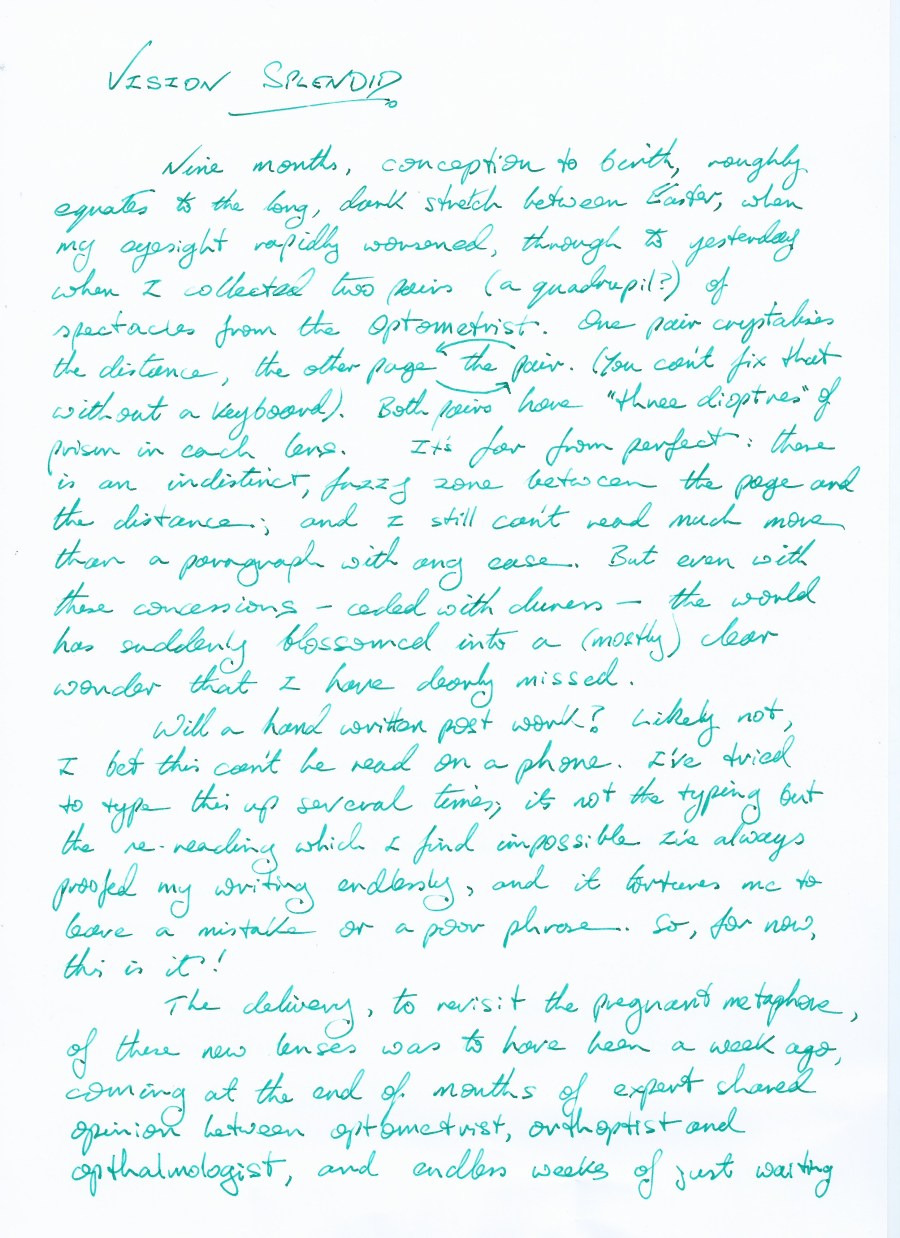 VISION SPLENDID
Nine months, conception to birth, roughly
equates to the long, dark stretch between Easter, when
my eyesight rapidly worsened, through to yesterday
when I collected two pairs (a quadrupil?) of
spectacles from the Optometrist. One pair crystalises
the distance, the other page the pair. (You can't fix that
without a keyboard). Both pairs have "three dioptres" of
prism in each lens. It's far from perfect: there
is an indistinct, fuzzy zone between the page and
the distance; and I still can't read much more
than a paragraph with any ease. But even with
these concessions – ceded with – the world
has suddenly blossomed into a (mostly) clear
wonder that I have dearly missed.
Will a hand written post work? Likely not,
I bet this can't be read on a phone. I've tried
to type this up several times; it's not the typing but
the re-reading which I find impossible I've always
proofed my writing endlessly, and it tortures me to
leave a mistake or a poor phrase. So, for now,
this is it!
The delivery, to revisit the pregnant metaphore,
of these new lenses was to have been a week ago,
coming at the end of months of expert shared
opinion between optometrist, orthoptist and
opthalmologist, and endless weeks of just waiting